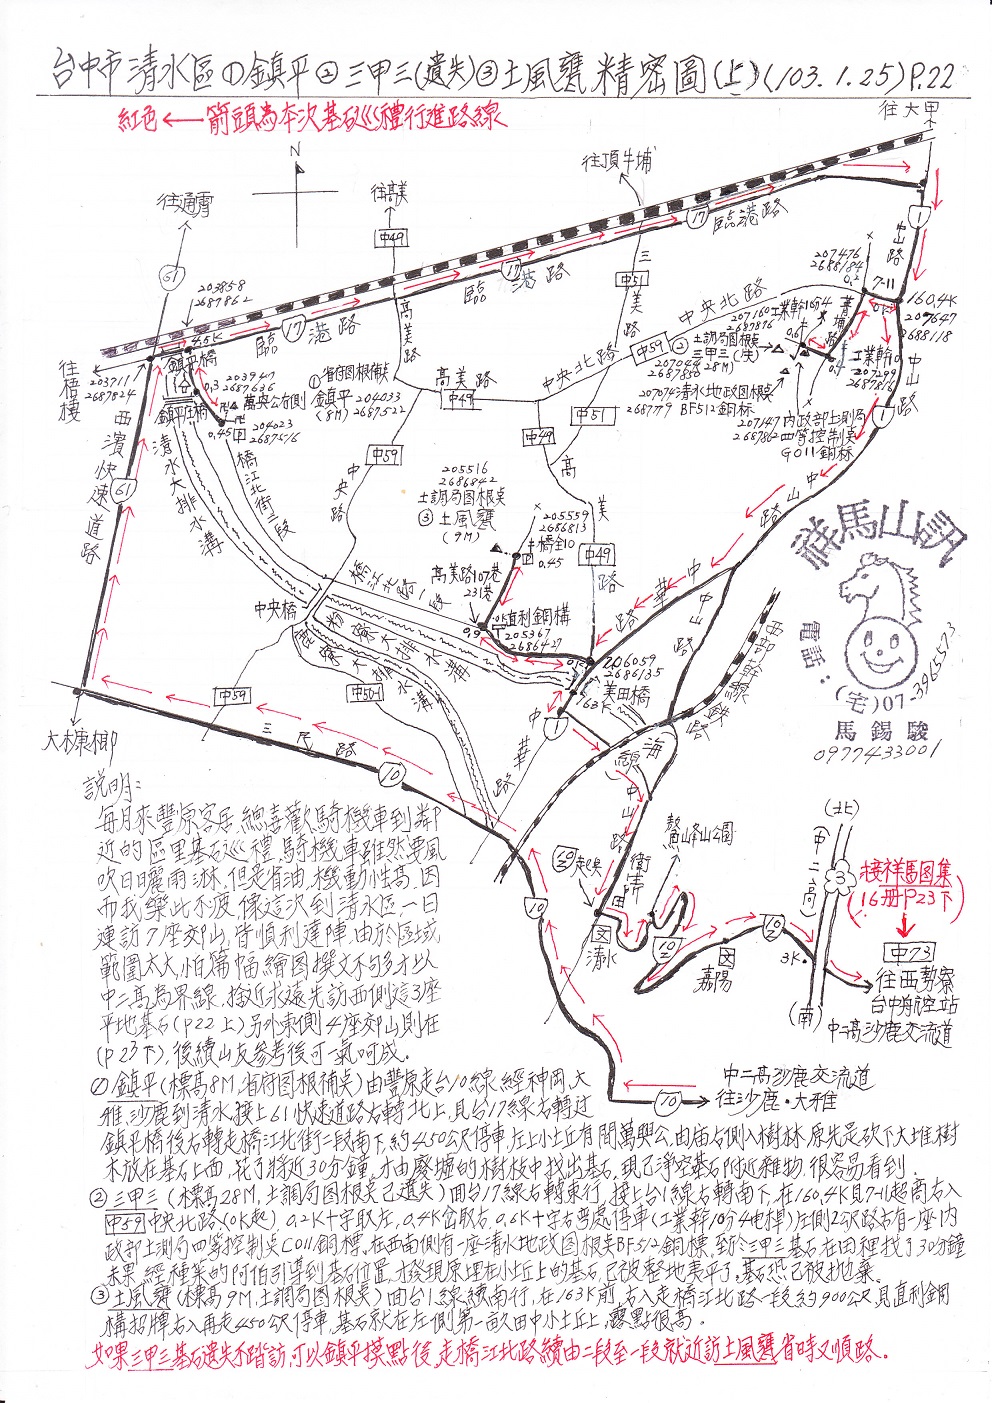 台中市清水區①鎮平②三甲三(遺失)③土風甕精密圖(上)(103.1.25)P.22
紅色←箭頭為本次基石巡禮行進路線
往大甲
N
往通霄
往高美
往頂牛埔
中49
17 臨港路
三美路
中51
1
中山路
61
203858
2687862
4.5K
17
臨港路
高美路
中央北路
中59
207476
2688184
0.2
7-11
160.4K
207647
2688118
往梧棲
203711
2687824
鎮平橋
0.3
203947
2687636
萬興公右側
204023
2687516
0.45
①省府圖根補點
鎮平
(8M)
204033
2687522
高美路
中49
②土調局圖根點
三甲三(失)
(28M)
207160
2687876
工業幹10分4
0.6
工業幹10
207299
2687816
207074清水地政圖根點
268779 BF512銅標
207147內政部土測局
2687862四等控制點
G011銅標
西濱快速道路
61
清水大排水溝
橋江北街二段
中央路
中59
中49
中51
高美路
中49
205516
2686842
土調局圖根點
③土風甕
(9M)
205559
2686813
土橋全10
0.45
高美路107巷
231巷
直利鋼構
205367
2686427
0.9
206059
2686135
美田橋
163K
中央橋
橋江北路一段
中華路
中山路
西部幹線鐵路
中59
中50-1
三民路
10
大槺榔
祥馬山訊
電話:(宅)07-3965573
馬錫駿
0977433001
海線
中山路
鰲峰山公園
衛清田
清水
嘉陽
3K
(北)
(中二高)
3
(南)
接祥馬圖集
(16冊P23下)
中73
往西勢寮
台中航空站
中二高沙鹿交流道
中二高沙鹿交流道
往沙鹿·大雅
10
說明:
每月來豐原客居,總喜歡騎機車到鄰
近的區里基石巡禮,騎機車雖然要風
吹日曬雨淋,但是省油,機動性高,因
而我樂此不疲,像這次到清水區,一日
連訪7座郊山,皆順利達陣,由於區域
範圍太大,怕篇幅繪圖撰文不夠才以
中二高為界線,捨近求遠先訪西側這3座
平地基石(P22上)另外東側4座郊山則在
(P23下),後續山友參考後可一氣呵成.
①鎮平(標高8M,省府圖根補點)由豐原走台10線,經神岡,大
雅,沙鹿到清水,接上61快速道路右轉北上,見台17線右轉過
鎮平橋後右轉走橋江北街二段南下,約450公尺停車,左上小土丘有間萬興公,由廟右側入樹林,原先是砍下大堆樹
木放在基石上面,花了將近30分鐘,才由廢墟的樹枝中找出基石,現已淨空基石附近雜物,很容易看到.
②三甲三(標高28M,土調局圖根點已遺失)回台17線右轉東行,接上台1線右轉南下,在160.4K見7-11超商右入
中59中央北路(0K起),0.2K+字取左,0.4K岔取右,0.6K+字右彎處停車(工業幹10分4電桿)左側2公尺路右有一座內
政部土測局四等控制點G011銅標,在西南側有一座清水地政圖根點BF512銅標,至於三甲三基石,在田裡找了30分鐘
未果,經種菜的阿伯引導到基石位置,才發現原埋在小土丘上的基石,已被整地夷平了,基石恐已被拋棄.
③土風甕(標高9M,土調局圖根點)回台1線續南行,在163K前,右入走橋江北路一段約900公尺,見直利鋼
構招牌右入再走450公尺停車,基石就在左側第一畝田中小土丘上,露點很高.
如果三甲三基石遺失不踏訪,可以鎮平摸點後,走橋江北路續由二段至一段就近訪土風甕省時又順路.